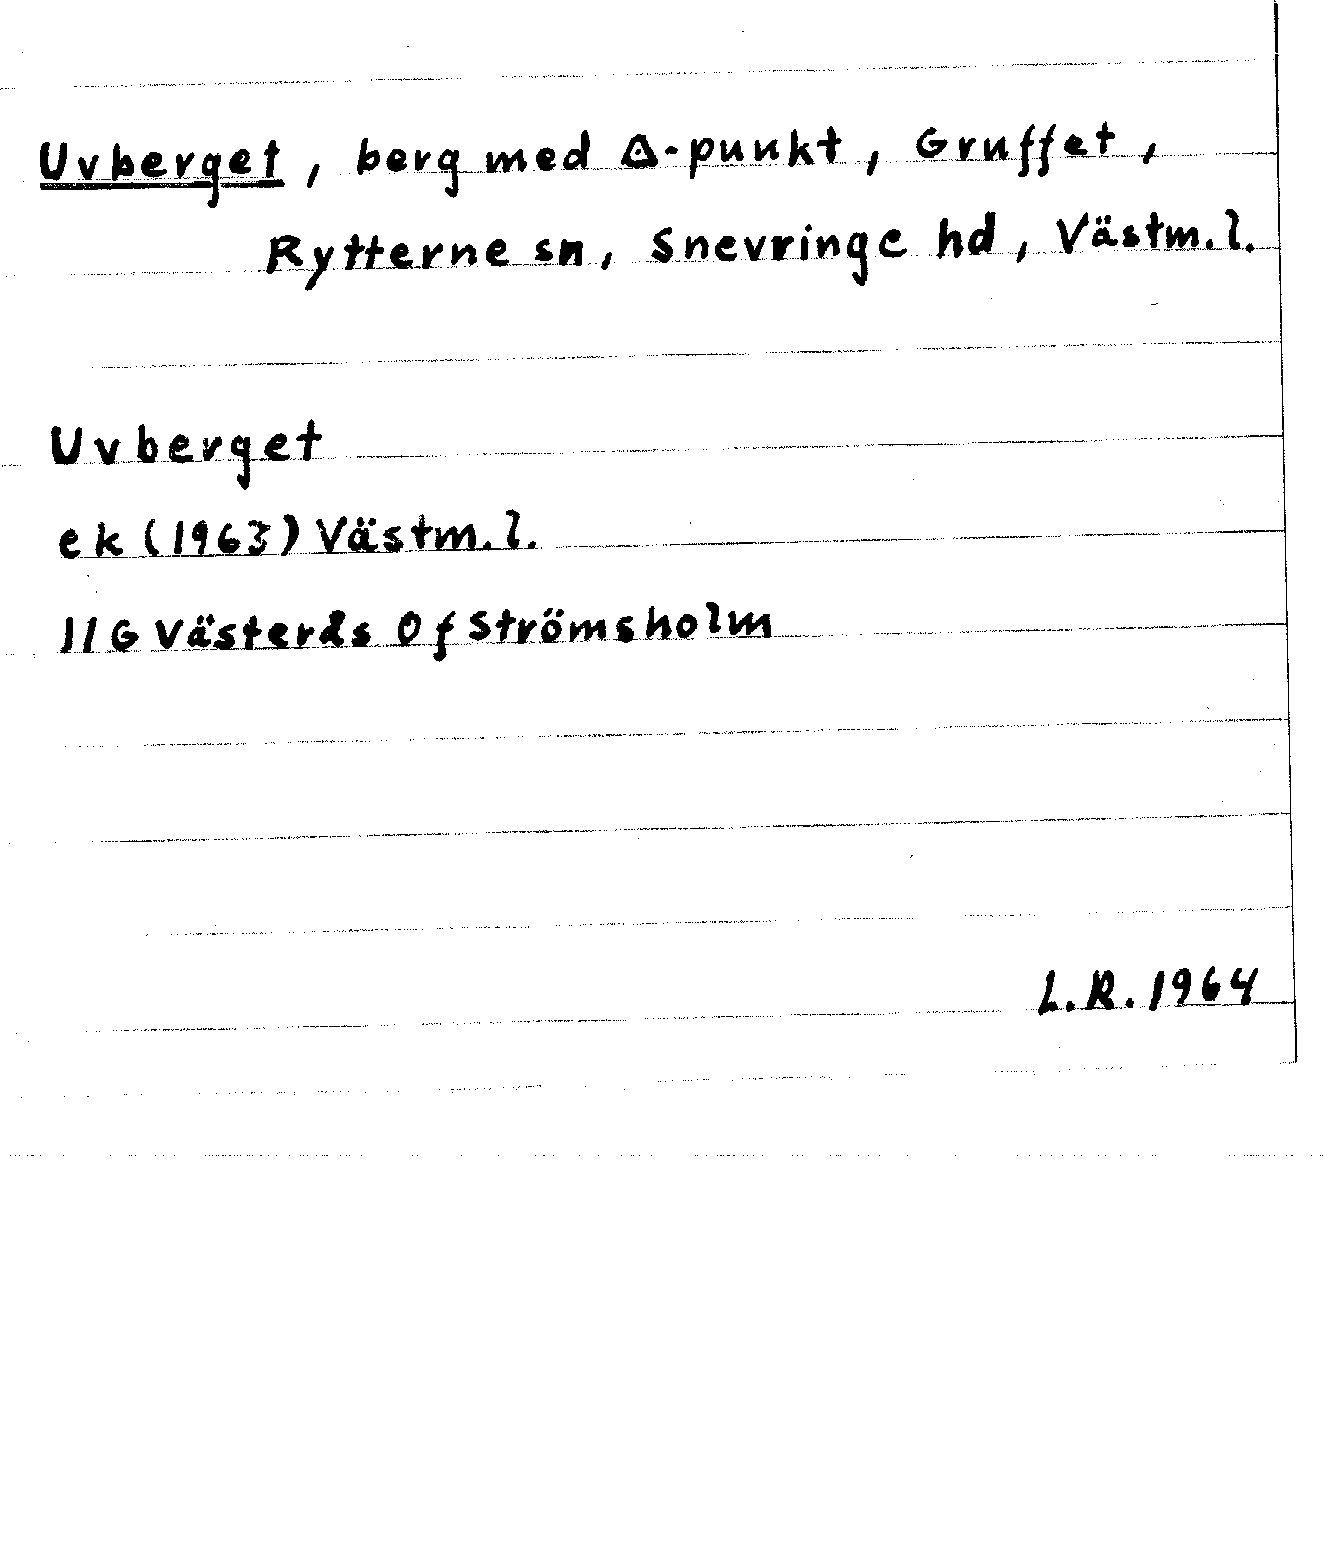 Uvberget, berg med △-punkt, Gruffet,
Rytterne sn, Snevringe hd, Västm.l.
Uvberget
ek (1963) Västm.l.
11G Västerås Of Strömsholm
L.R. 1964